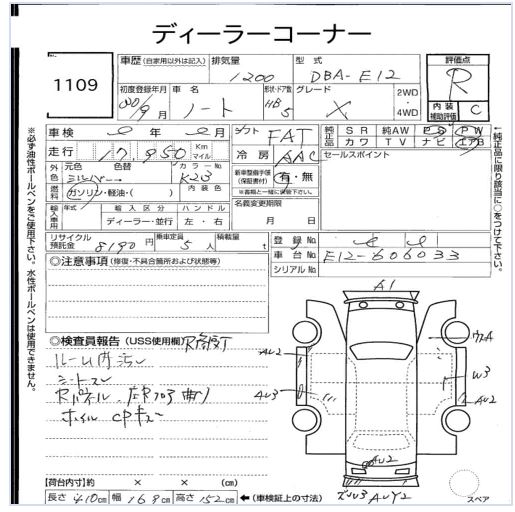 ディーラーコーナー
1109
車歴 (自家用以外は記入) 排気量 1200 型式 DBA-E12
評価点 R
初度登録年月 30/9月 車名 ノート 形状・ドア数 HB 5 グレード X 2WD・4WD
内装補助評価 C
車検 年 月 シフト FAT
純正品 SR 純AW PS PW
カワ TV ナビ エアB
走行 17,950 Km マイル 冷房 AAC セールスポイント
外色 元色 シルバー 色替 カラーNo K23
新車整備手帳(保証書付) 有・無
※書類と一緒に実車して下さい。
燃料 ガソリン・軽油・( ) 内装色
名義変更期限 月 日
輸入車用 年式 輸入区分 ディーラー・並行 ハンドル 左・右
リサイクル預託金 8190円 乗車定員 5人 積載量 t
登録No.
車台No. E12-606033
シリアルNo.
※必ず油性ボールペンをご使用下さい。水性ボールペンは使用できません。
※純正品に限り該当に○をつけて下さい。
◎注意事項 (修復・不具合箇所および状態等)
◎検査員報告 (USS使用欄)
ルーム内汚レ
シートスレ
Rパネル
ホイルCPキズ
A1
AU2
AU3
W3
AU2
AU2
AUY2
スペア
【荷台内寸】約 × × (cm)
長さ 410cm 幅 169cm 高さ 152cm ←(車検証上の寸法)